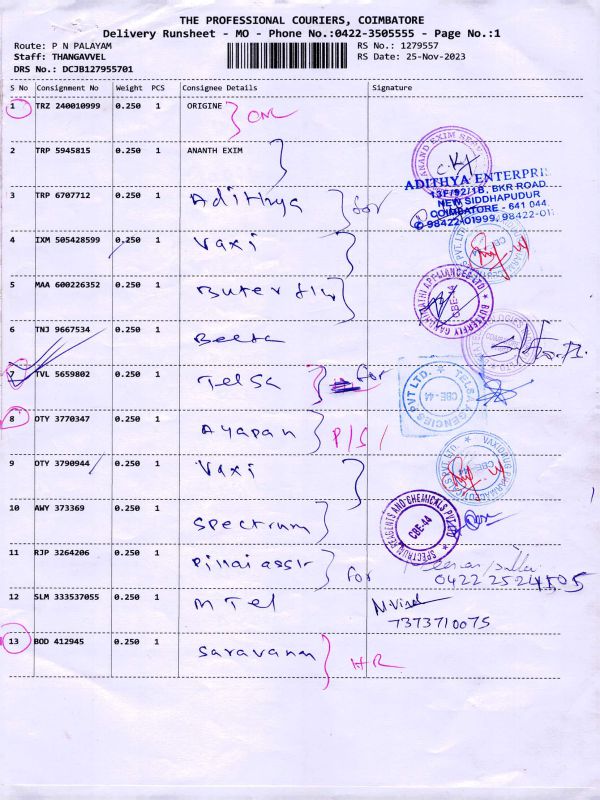 THE PROFESSIONAL COURIERS, COIMBATORE
Delivery Runsheet - MO - Phone No.:0422-3505555 - Page No.:1
Route: P N PALAYAM RS No.: 1279557
Staff: THANGAVVEL RS Date: 25-Nov-2023
DRS No.: DCJB127955701
S No Consignment No Weight PCS Consignee Details Signature
1 TRZ 240010999 0.250 1 ORIGINE
2 TRP 5945815 0.250 1 ANANTH EXIM
ADITHYA ENTERPRIS
13F/92/1B, BKR ROAD
NEW SIDDHAPUDUR
COIMBATORE - 641 044
98422-01999, 98422-01
3 TRP 6707712 0.250 1 Adithya for
4 IXM 505428599 0.250 1 Vaxi
5 MAA 600226352 0.250 1 Buterfly
BUTTERFLY GANDHIMATHI APPLIANCES LTD CBE-44
6 TNJ 9667534 0.250 1 Beeta
7 TVL 5659802 0.250 1 Telsa for
TELSA AGENCIES PVT LTD. CBE-44
8 OTY 3770347 0.250 1 Ayapan P/S/
9 OTY 3790944 0.250 1 Vaxi
10 AWY 373369 0.250 1 Spectrum
SPECTRUM REAGENTS AND CHEMICALS PVT LTD CBE-44
11 RJP 3264206 0.250 1 Pillai assr for
0422 2524505
12 SLM 333537055 0.250 1 M Tel
7373710075
13 BOD 412945 0.250 1 Saravanan HR